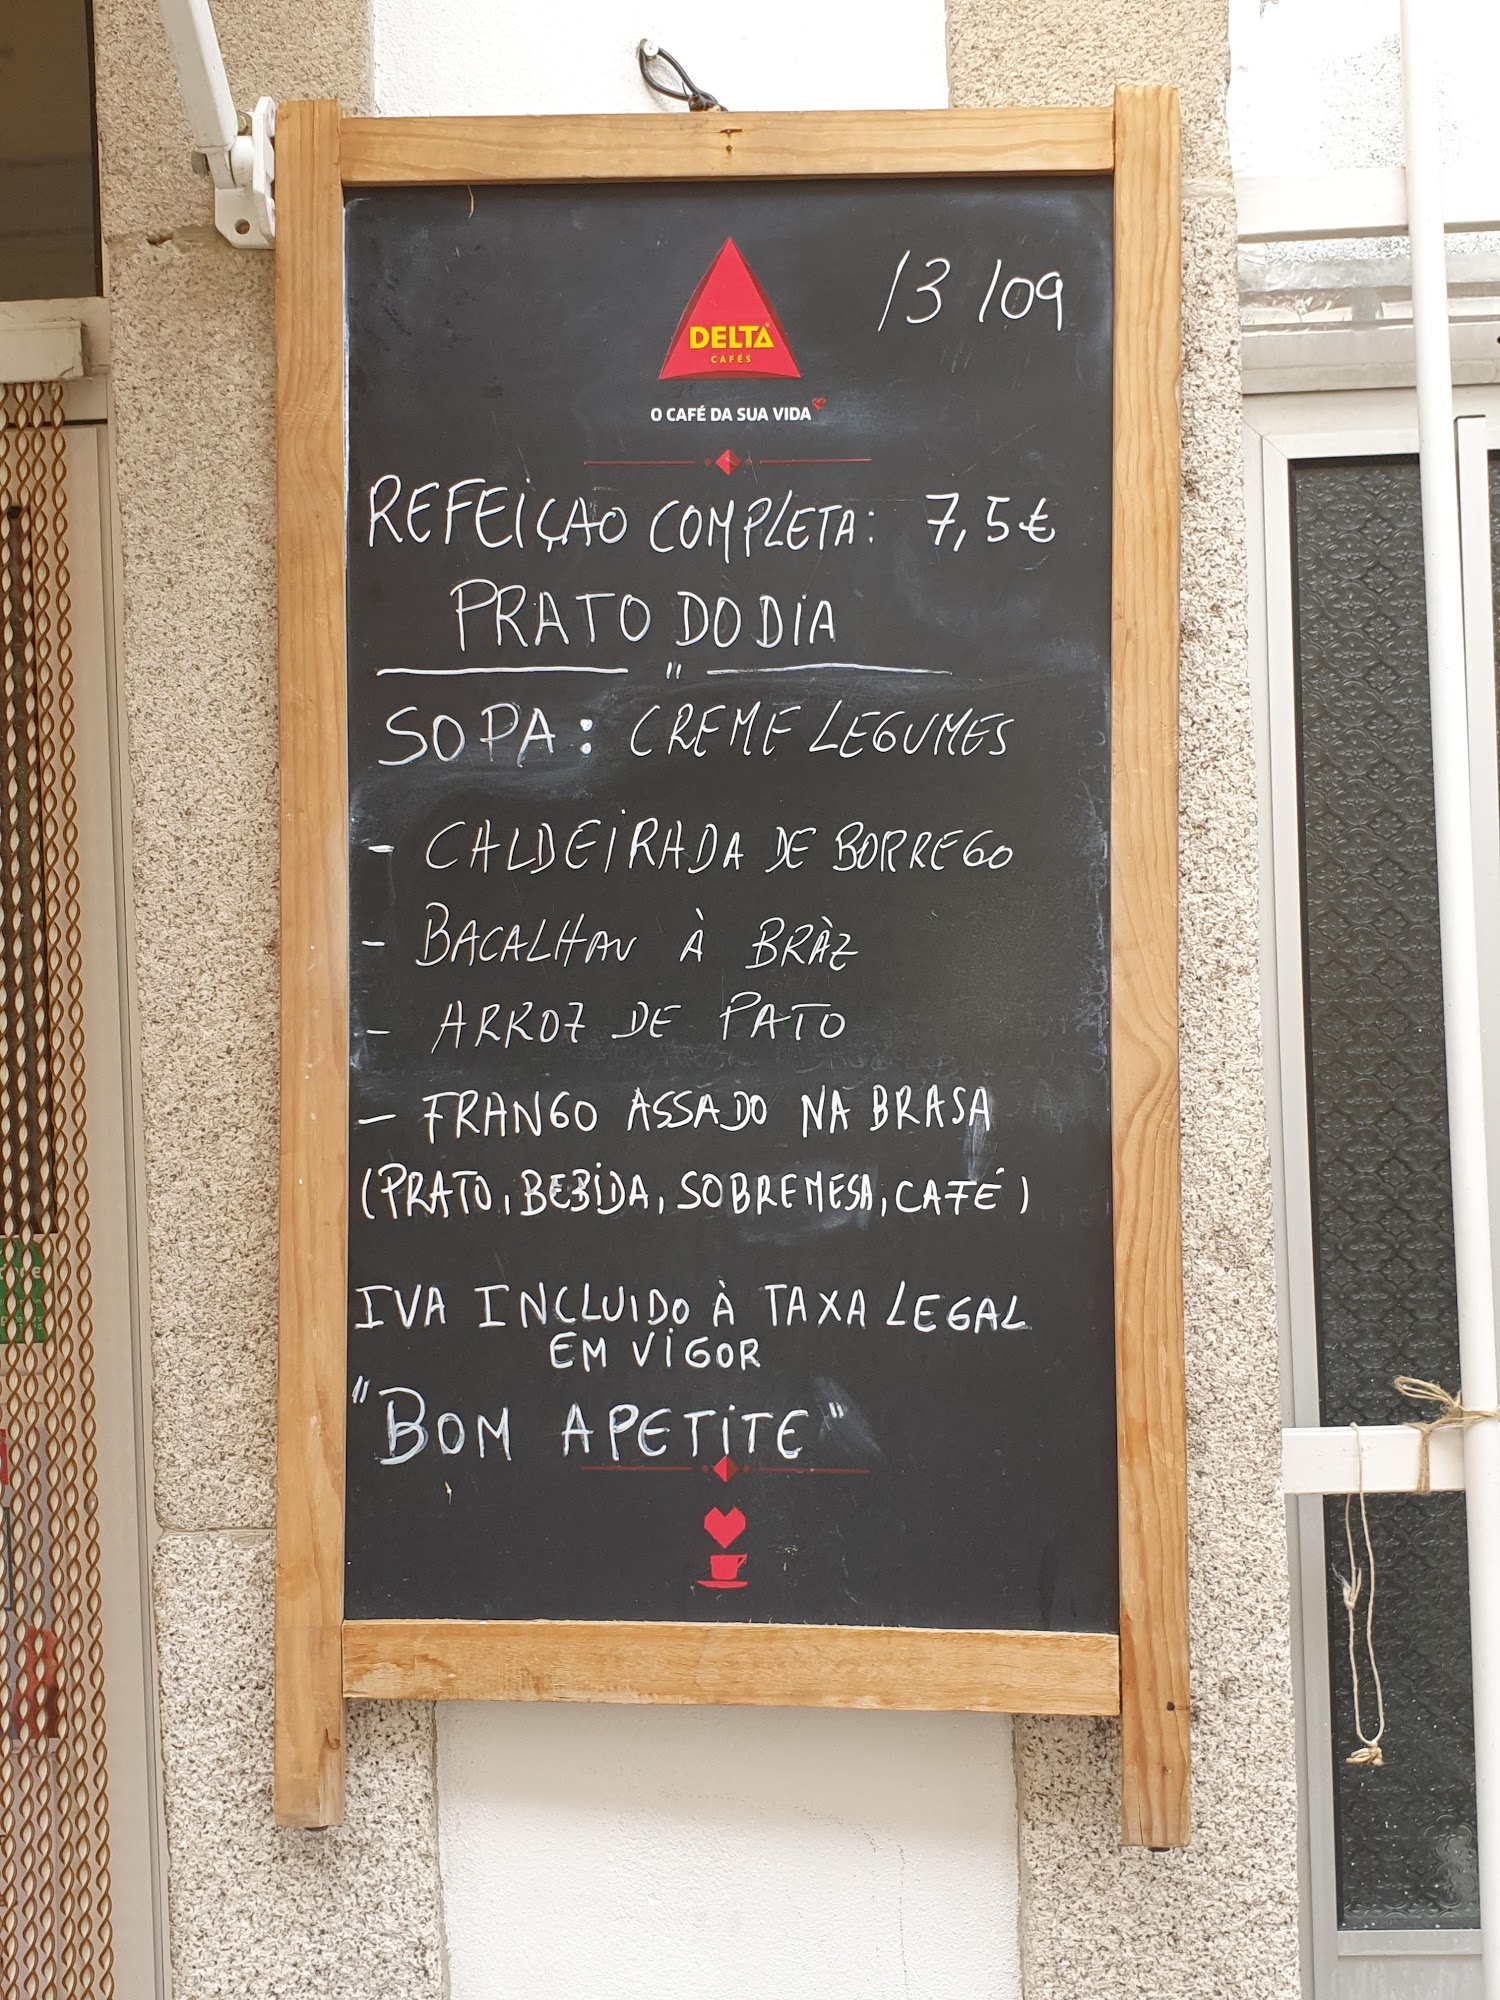 13/09
DELTA
CAFÉS
O CAFÉ DA SUA VIDA
REFEIÇAO COMPLETA: 7,5€
PRATO DO DIA
"
SOPA: CREME LEGUMES
- CALDEIRADA DE BORREGO
- BACALHAU À BRÀZ
- ARROZ DE PATO
- FRANGO ASSADO NA BRASA
(PRATO, BEBIDA, SOBREMESA, CAFÉ)
IVA INCLUIDO À TAXA LEGAL
EM VIGOR
"BOM APETITE"